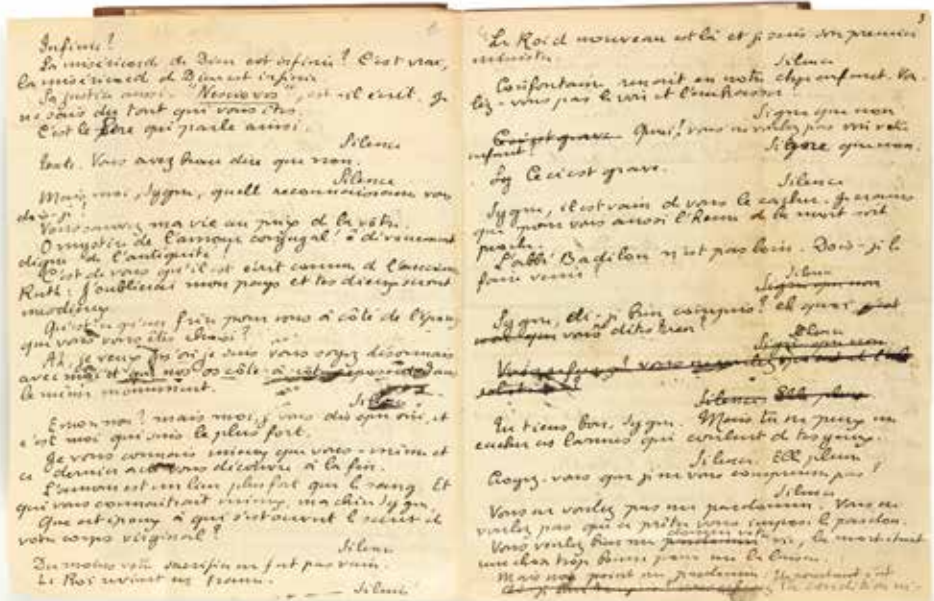 Infinie?
La miséricorde de Dieu est infinie? C'est vrai,
la miséricorde de Dieu est infinie
Sa justice aussi. "Nescio vos", est-il écrit. Je
ne sais du tout qui vous êtes.
C'est le Père qui parle ainsi.
Silence
Vous avez beau dire que non.
Silence
Mais moi, Sygne, quelle reconnaissance vous
dois-je!
Vous sauvez ma vie au prix de la vôtre.
O mystère de l'amour conjugal! ô dévouement
digne de l'antiquité!
C'est de vous qu'il est écrit comme de l'ancienne
Ruth: J'oublierai mon pays et tes dieux seront
mes dieux
Qu'est-ce qu'un frère pour vous à côté de l'époux
que vous vous êtes choisi?
Ah, je veux qu'où je suis vous soyez désormais
avec moi et que nos os côte à côte reposent dans
le même monument.
Silence
Encore non? mais moi, je vous dis que oui, et
c'est moi qui suis le plus fort.
Je vous connais mieux que vous-même et
ce dernier acte vous découvre à la fin.
L'amour est un lien plus fort que le sang. Et
qui vous connaîtrait mieux, ma chère Sygne,
Que cet époux à qui s'est ouvert le secret de
votre corps virginal?
Silence
Du moins votre sacrifice ne fut pas vain.
Le Roi revient en France.
Silence
3
Le Roi de nouveau est là et je suis son premier
ministre.
Silence
Coûfontaine renaît en notre cher enfant. Vou-
lez-vous pas le voir et l'embrasser.
Signe que non
Ceci est grave. Quoi! vous ne voulez pas voir votre
enfant!
Signe que non.
Ceci est grave.
Silence
Sygne, il est vain de vous le cacher. Je crains
que pour vous aussi l'heure de la mort soit
proche.
L'abbé Badilon n'est pas loin. Dois-je le
faire venir?
Silence
Signe que non
Sygne, ai-je bien compris? eh quoi,
que vous dites bien?
Silence
Signe que non
Silence Elle pleure
Tu tiens bon, Sygne. Mais tu ne peux me
cacher ces larmes qui coulent de tes yeux.
Silence. Elle pleure
Croyez-vous que je ne vous comprenne pas?
Silence
Vous ne voulez pas me pardonner. Vous ne
voulez pas que ce prêtre vous impose le pardon.
Vous voulez bien me donner votre vie, la mort étant
une chose trop bonne pour
Mais non point me pardonner.
la condition